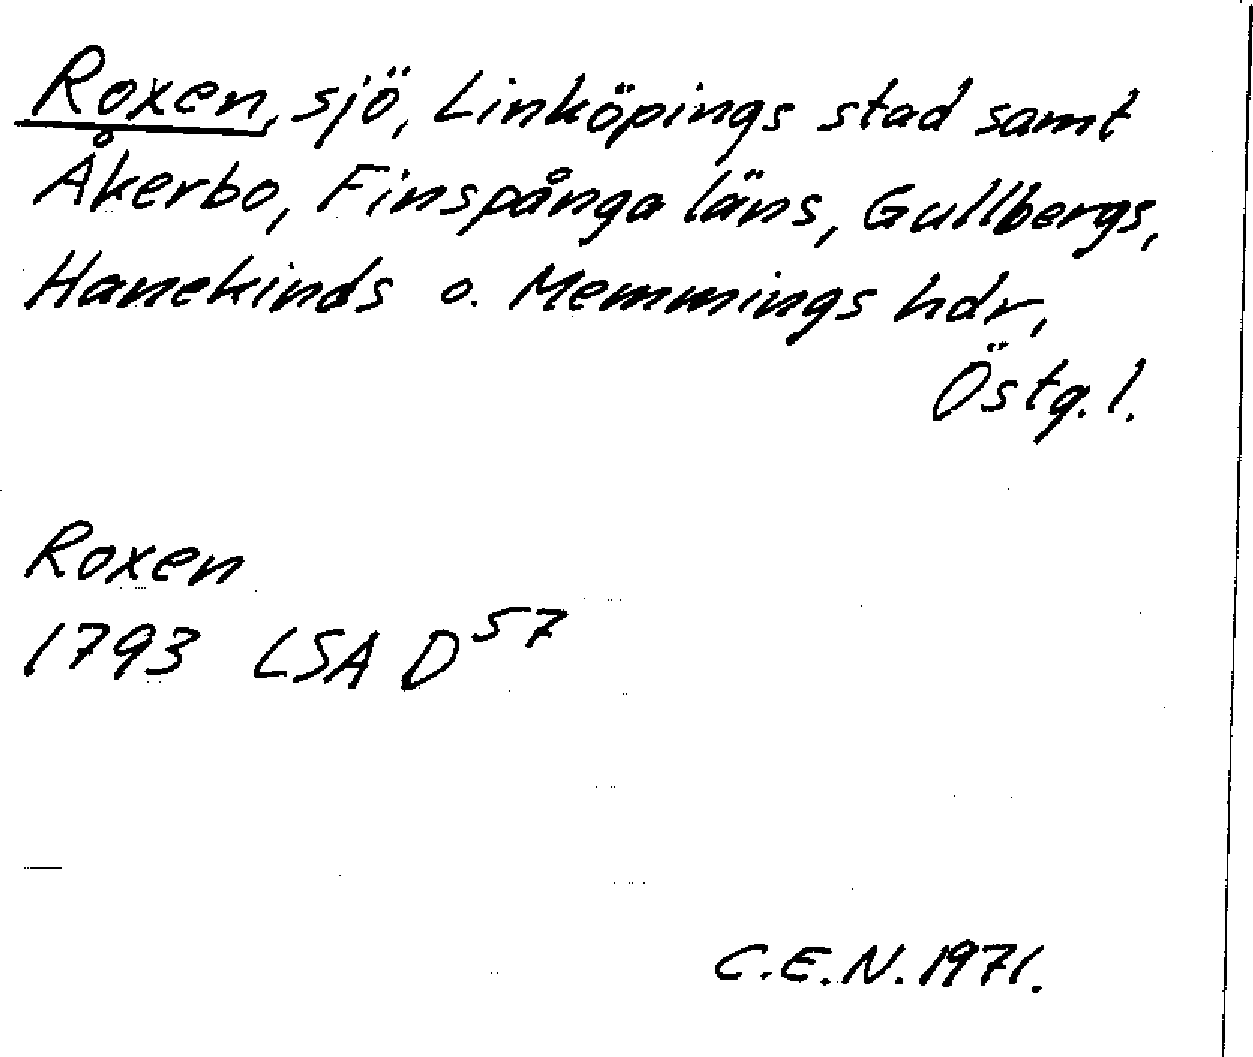 Roxen, sjö, Linköpings stad samt
Åkerbo, Finspånga läns, Gullbergs,
Hanekinds o. Memmings hdr,
Östg. l.
Roxen
1793 LSA D 57
C.E.N. 1971.